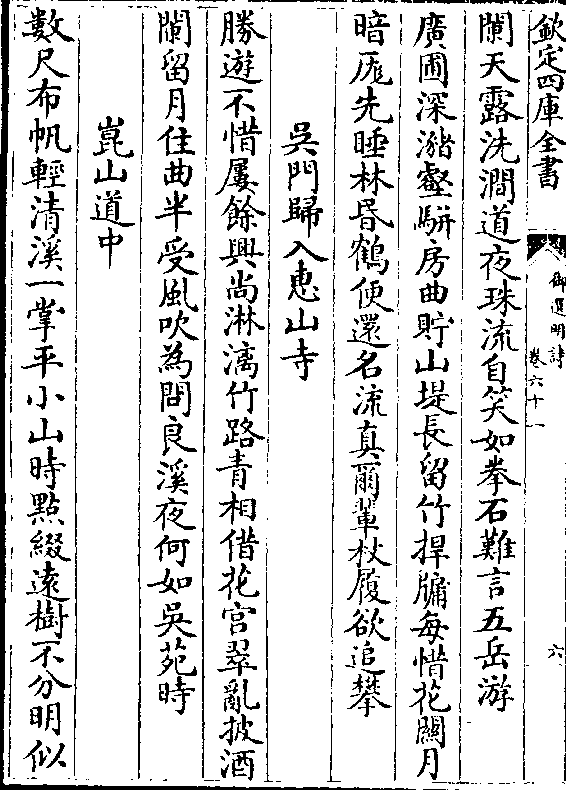 欽定四庫全書
御選明詩
卷六十一
六
闌天露洗澗道夜珠流自笑如拳石難言五岳游
廣圃深瀦壑駢房曲貯山堤長留竹捍牖每惜花關月
暗厐先睡林昏鶴便還名流真爾輩杖履欲追攀
吳門歸入惠山寺
勝遊不惜屢餘興尚淋漓竹路青相借花宮翠亂披酒
闌留月住曲半受風吹為問良溪夜何如吳苑時
崑山道中
數尺布帆輕清溪一掌平小山時點綴遠樹不分明似